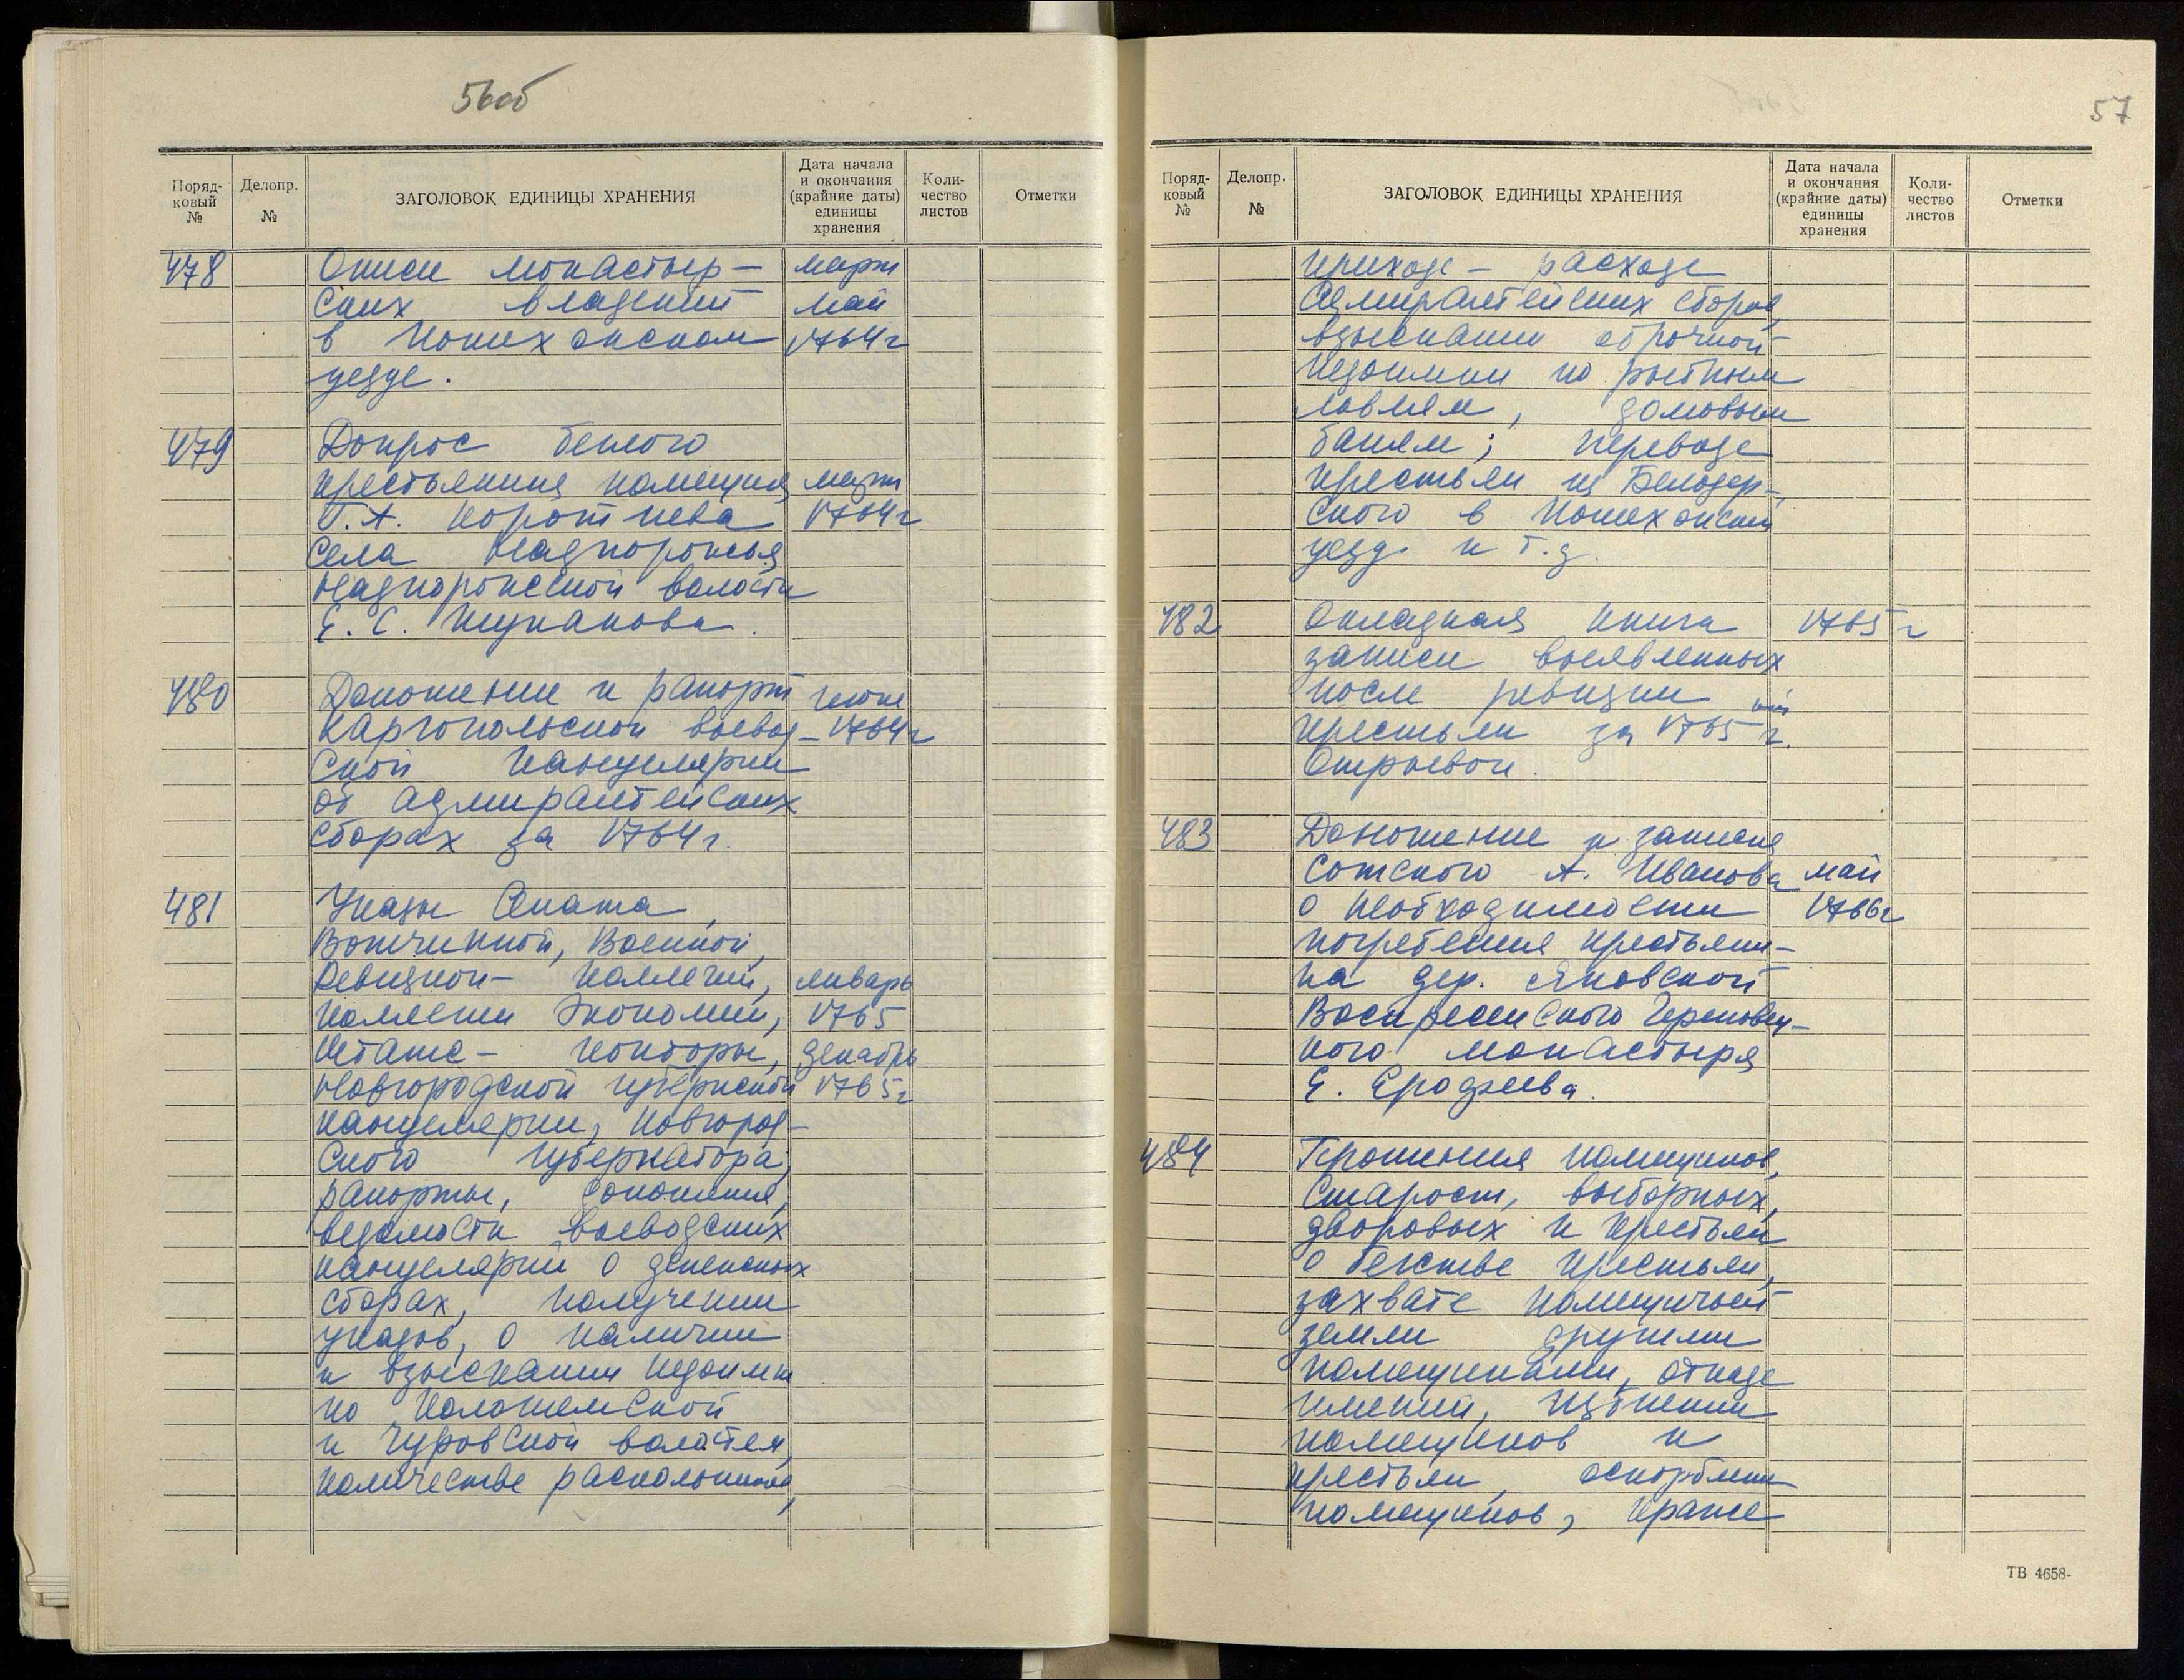 56об
Поряд-
ковый
№
Делопр.
№
ЗАГОЛОВОК ЕДИНИЦЫ ХРАНЕНИЯ
Дата начала
и окончания
(крайние даты)
единицы
хранения
Коли-
чество
листов
Отметки
478 Описи монастыр- март
ских владений май
в Пошехонском 1764 г
уезде.
479 Допрос беглого
крестьянина помещика март
Коротнева 1764 г
села Надпорожья
Надпорожской волости
Е. С. Шуканова.
480 Доношение и рапорт июнь
Каргопольской воевод- 1764 г
ской канцелярии
об адмиралтейских
сборах за 1764 г.
481 Указы Сената,
Вотчинной, Военной,
Ревизион- коллегий, январь
коллегии Экономии, 1765
Штатс- конторы, декабрь
Новгородской губернской 1765 г
канцелярии, Новгород-
ского губернатора;
рапорты, доношения,
ведомости воеводских
канцелярий о денежных
сборах, получении
указов, о наличии
и взыскании недоимки
по
и Чуровской волостям,
количестве раскольников,
57
Поряд-
ковый
№
Делопр.
№
ЗАГОЛОВОК ЕДИНИЦЫ ХРАНЕНИЯ
Дата начала
и окончания
(крайние даты)
единицы
хранения
Коли-
чество
листов
Отметки
приходе - расходе
адмиралтейских сборов,
взыскании оброчной
недоимки по рыбным
ловлям, домовым
баням; переводе
крестьян из Белозер-
ского в Пошехонский
уезд и т.д.
482 Окладная книга 1765 г
записи выявленных
после ревизии
крестьян за 1765 г.
Отрывок.
483 Доношение и записка
сотского А. Иванова май
о необходимости 1766 г
погребения крестьяни-
на дер. Яковской
Воскресенского Черповец-
кого монастыря
Е. Ерофеева.
484 Прошения помещиков,
старост, выборных,
дворовых и крестьян
о бегстве крестьян,
захвате помещичьей
земли другими
помещиками, отказе
имений, избиении
помещиков и
крестьян, оскорблении
помещиков, краже
ТВ 4658-